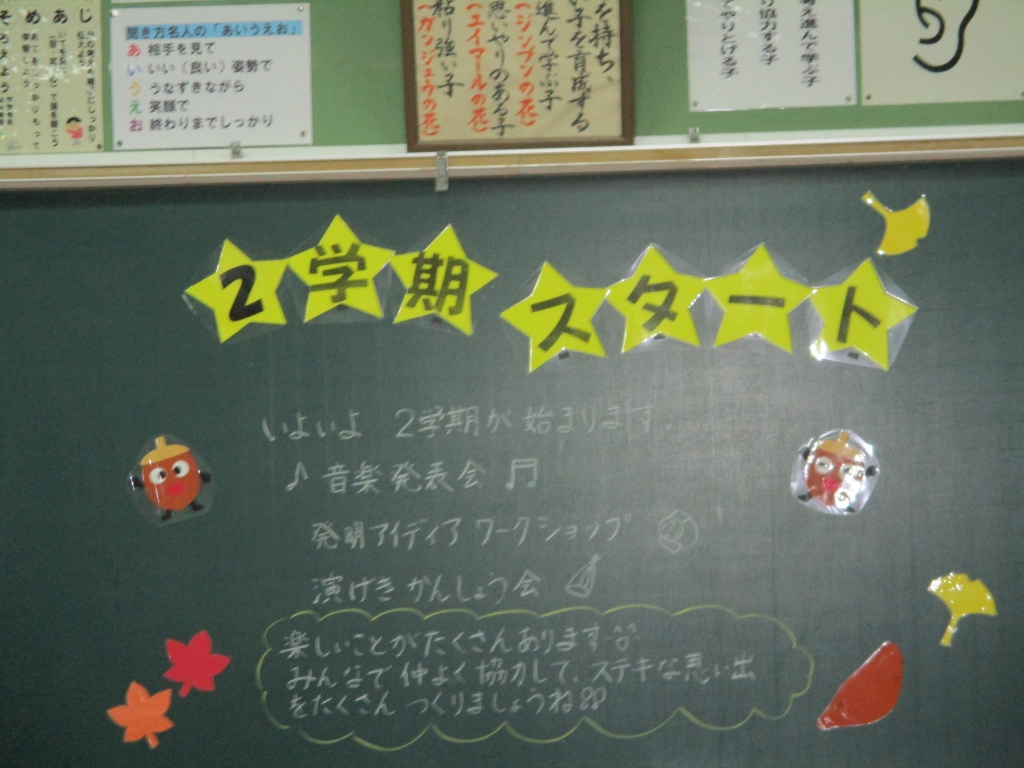 じ
あ
め
聞き方名人の「あいうえお」
あ 相手を見て
い いい（良い）姿勢で
う うなずきながら
え 笑顔で
お 終わりまでしっかり
を持ち、
い子を育成する
進んで学ぶ子
〈ジンブンの花〉
思いやりのある子
〈エイマールの花〉
粘り強い子
〈ガンジュウの花〉
え進んで学ぶ子
け協力する子
でやりとげる子
2学期 スタート
いよいよ 2学期が始まります。
♪音楽発表会♬
発明アイディアワークショップ
演げきかんしょう会
楽しいことがたくさんあります
みんなで仲よく協力して、ステキな思い出
をたくさんつくりましょうね